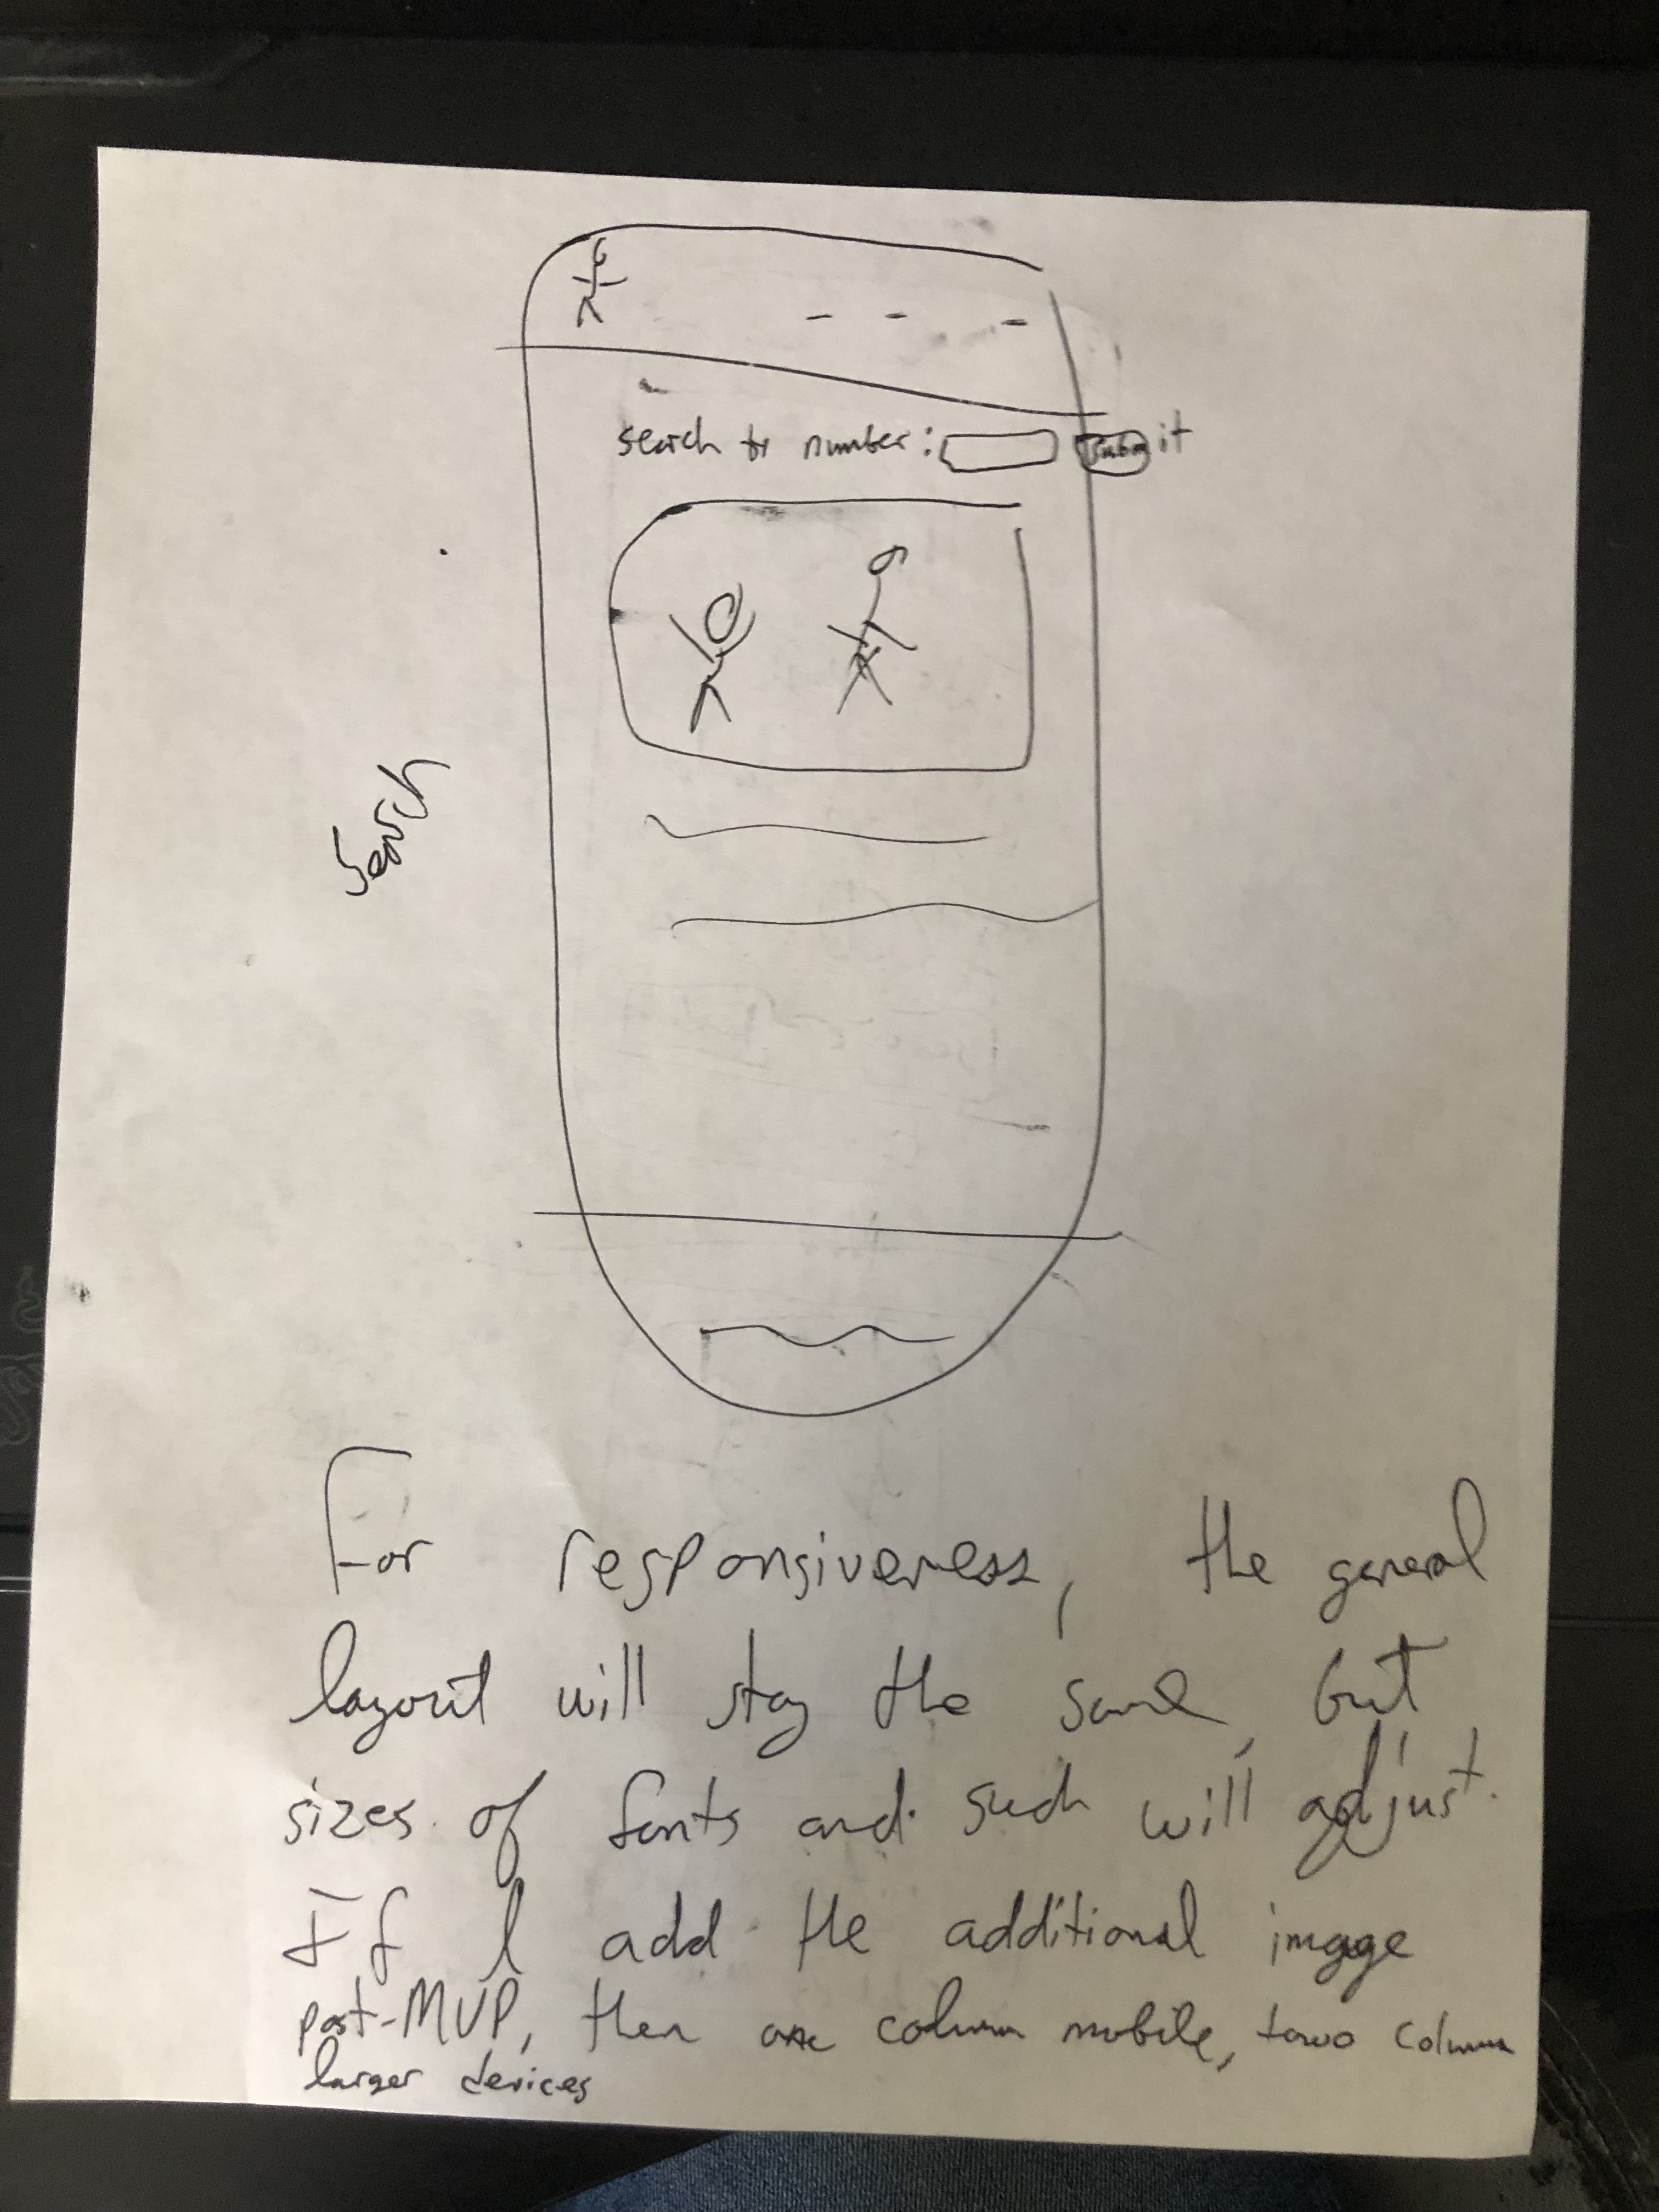 search by number: Submit
Search
For responsiveness, the general
layout will stay the same, but
sizes of fonts and such will adjust.
If I add the additional image
post-MVP, then one column mobile, two column
larger devices